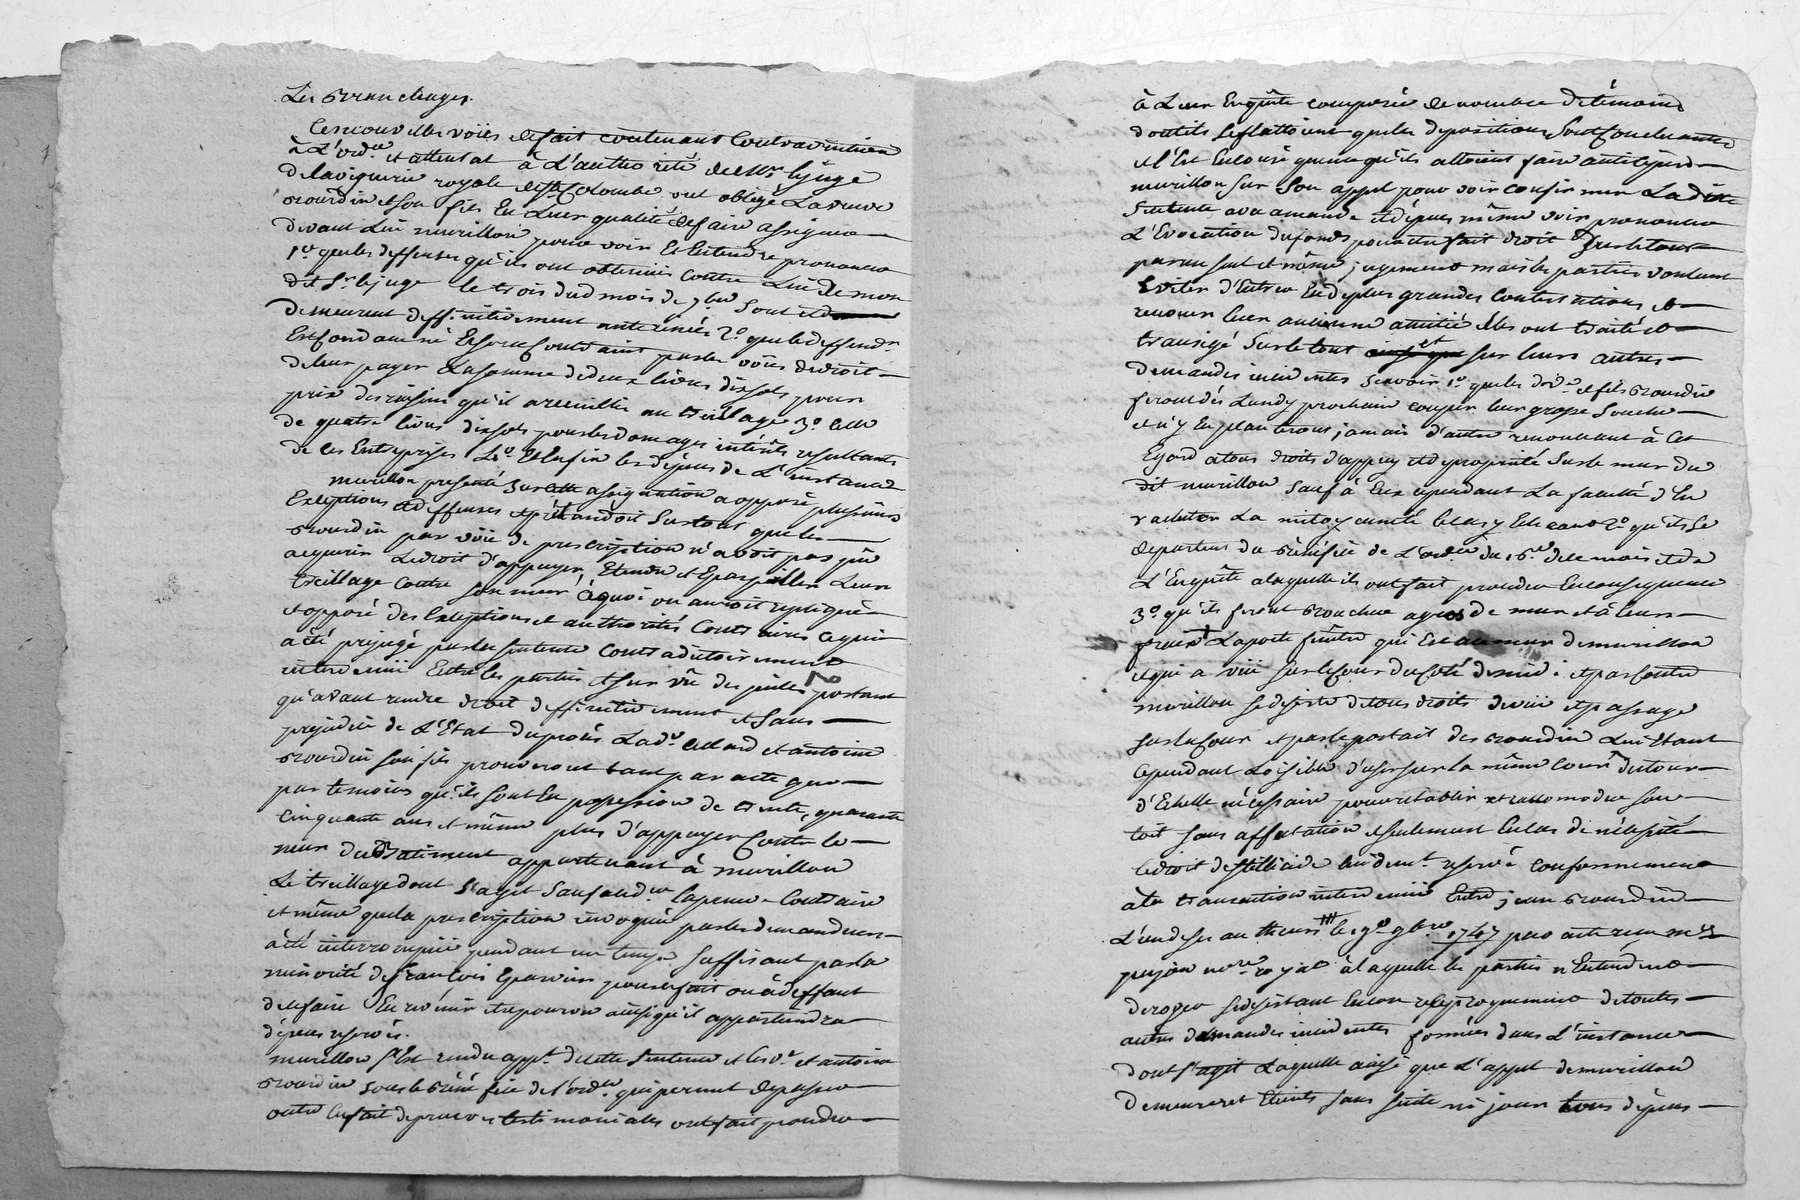 Les Branchages.
Ces nouvelles voiies de fait contenant Contravention
à L'ord.ce et attentat à L'authorité de Mr. le juge
de la viguerie royale de Ste Colombe ont obligé La veuve
Bourdin et son fils En Leur qualité de faire assigner
devant Lui murillon pour voir Et Entendre prononcer
1.o que les deffenses qu'ils ont obtenües Contre Lui de mon
dit Sr. le juge le trois dud mois de 9bre sont et
demeurent deffinitivement 2.o que le deffend.r
Est Condamné Et sera Contraint par les voiies de droit
de leur payer La somme de deux livres dix sols pour
prix des raisins qu'il a cueillis au treillage 3.o Celle
de quatre livres dix sols pour les domages intérêts resultants
de ces Entreprises Et Enfin les dépens de L'instance
murillon presenté sur cette assignation a opposé plusieurs
Exeptions et deffenses et prétandoit sur tout que les
Bourdin par voiie de prescription n'avoit pas pû
acquerir Le droit d'appuyer, Etendre et Eparpiller Leur
treillage Contre son mur à quoi on auroit repliqué
et opposé des Exeptions et authorités Contraires ce qui
a été préjugé par la sentence Contradictoirement
intervenüe Entre les parties et sur vû des pieces portant
qu'avant rendre droit deffinitivement et sans
prejudice de L'Etat du procés La d.e allard et antoine
Bourdin son fils prouveront tant par acte que
par temoins qu'ils sont En possession de trente, quarante
Cinquante ans et même plus d'appuyer Contre le
mur du Batiment appartenant à murillon
Le treillage dont s'agit sauf aud. la preuve Contraire
et même que la prescription invoquée par les demandeurs
a été interrompüe pendant un temps suffisant par la
minorité de françois Eparvier pour ce fait ou à deffaut
de le faire En revenir et pourvu ainsi qu'il appartiendra
dépens reservés.
murillon s'est rendu app.t de cette sentence et les v.e et antoine
Bourdin sous le bénéfice de L'ord.ce qui permet de passer
outre En fait de preuves testimoniales ont fait proceder
à Leur Enquête composée de nombre de témoins
dont ils se flattoient que les depositions sont Concluantes
et c'est En Cour que qu'ils alloient faire anticiper
murillon sur son appel pour voir confirmer La dite
sentence avec amande et dépens même voir prononcer
L'Evocation du fonds pour être fait droit sur le tout
par un seul et même jugement mais les parties voulant
Eviter d'Entrer En de plus grandes Contestations et
renouer leur ancienne amitié Elles ont traité et
transigé sur le tout et sur leurs autres
demandes incidentes sçavoir 1.o que les dits v.e et fils Bourdin
feront dés Lundy prochain couper leur grosse souche
et n'y En planteront jamais d'autre renonceant à cet
Egard à tous droits d'appuy et de proprieté sur le mur du
dit murillon sauf à Eux cependant La faculté d'En
racheter La mitoyenneté le cas y Echeant 2.o qu'ils se
departent du bénéfice de L'ord.ce du 16.e de ce mois et de
L'Enquête à laquelle ils ont fait proceder En consequence
3.o qu'ils feront boucher à pied de mur et à leurs
fraix La petite fenêtre qui Est au mur de murillon
et qui a vüe sur le Cour du Coté de midi et par Contre
murillon se desiste de tous droits de vüe et passage
sur la Cour et par le portail des Bourdin Lui Etant
Cependant Loisible d'user sur la même Cour du tour
d'Echelle nécessaire pour retablir et racomoder son
toit sans affectation et seulement En cas de nécessité
le droit de stillicide Evidem.t reservé conformement
à la transaction intervenüe Entre jean Bourdin
L'un des autheurs le 9.e 9bre 1747 par acte reçu me
peyson no.re royal à laquelle les parties n'Entendent
deroger se desistant Encor reciproquement de toutes
autres demandes incidentes formées dans L'instance
dont s'agit Laquelle ainsi que L'appel de murillon
demeureront Eteints sans suite ni jour tous dépens